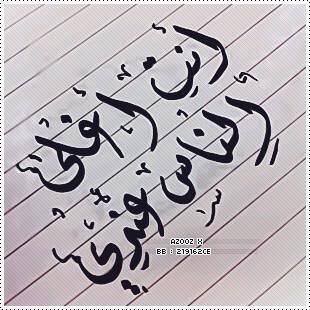 انتِ أغلى
الناس عندي
AZOOZ X
BB : 219162CE